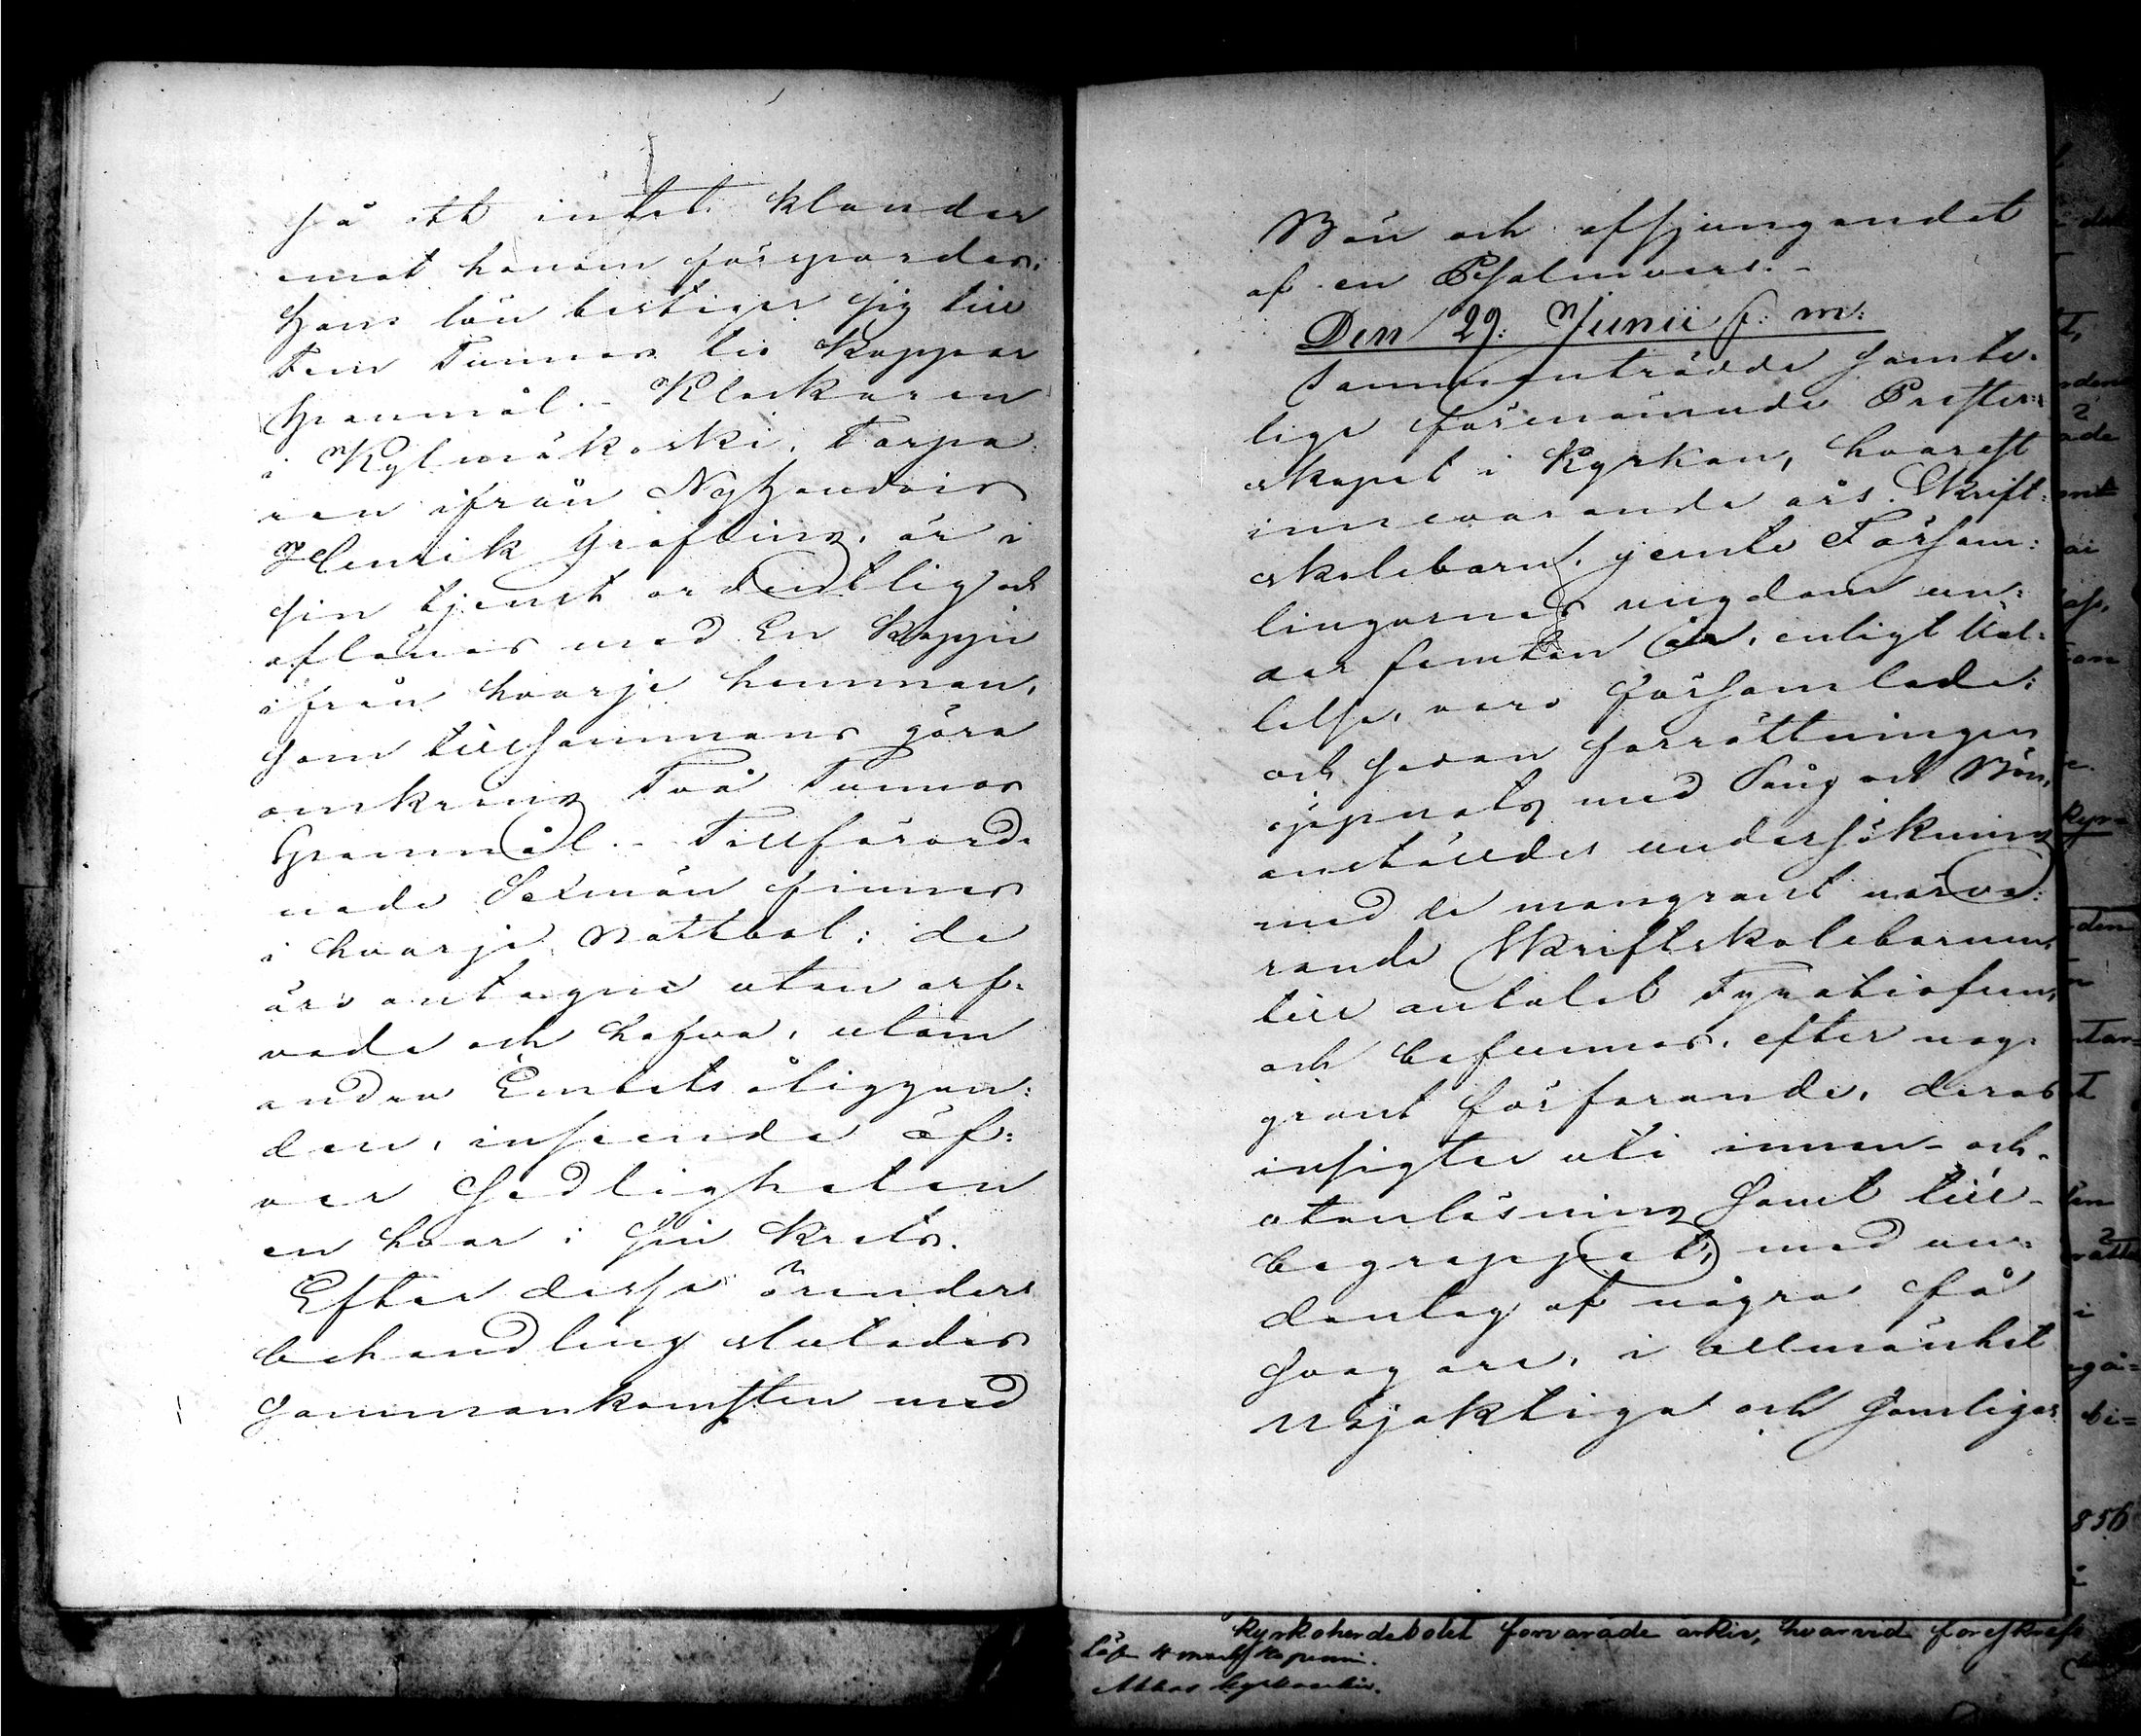 så att intet klander
emot honom förspordes.
Hans lön bestiger sig till
Fem Tunnor tio Kappar
Spanmål. - Klockaren
i Kylmäkoski, Torpa-
ren ifrån Nyhandois
Henrik Gräfling, är i
sin tjenst ordentlig och
aflönas med En Kappe
ifrån hvarje hemman,
som tillsammans göra
omkring Två Tunnor
Spanmål. - Tillförord-
nade Sexmän finnas
i hvarje Rotebol; de
äro antagne utan arf-
vode och hafva, utom
andra Embetsåliggan-
den, inseende öf-
ver Sedligheten
en hvar i sin Krets.
Efter dessa ärenders
behandling slutades
Sammankomsten med
Bön och afsjungandet
af en Psalmvers. -
Den 29: Junii f: m:
Sammanträdde samte-
lige förenämnde Prester-
skapet i Kyrkan, hvarest
innevarande års Skrift-
skolebarn, jemte Försam-
lingarnes ungdom un-
der femton år, enligt Kal-
lelse, voro församlade;
och sedan förrättningen
öppnats med Sång och Bön,
anställdes undersökning
med de mangrant närva-
rande Skriftskolebarnen,
till antalet Fyratiofem,
och befunnos, efter nog-
grant förfarande, deras
insigter uti innan- och
utanläsning samt till
begreppet, med un-
dantag af några få
svagare, i allmänhet
nöjaktiga och samtliges
kyrkoherdebolet förvarade arkiv, hvarvid föreskrefs
856